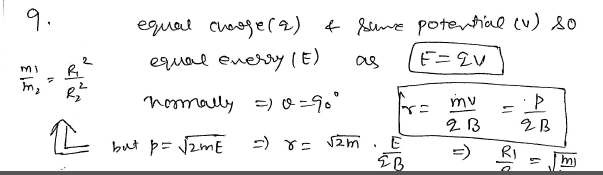 9. equal charge (q) & same potential (v) so
equal energy (E) as E = qV
m1/m2 = R1²/R2²
normally => θ = 90° r = mv/qB = p/qB
but p = √2mE => r = √2m . E/qB => R1 = √m1